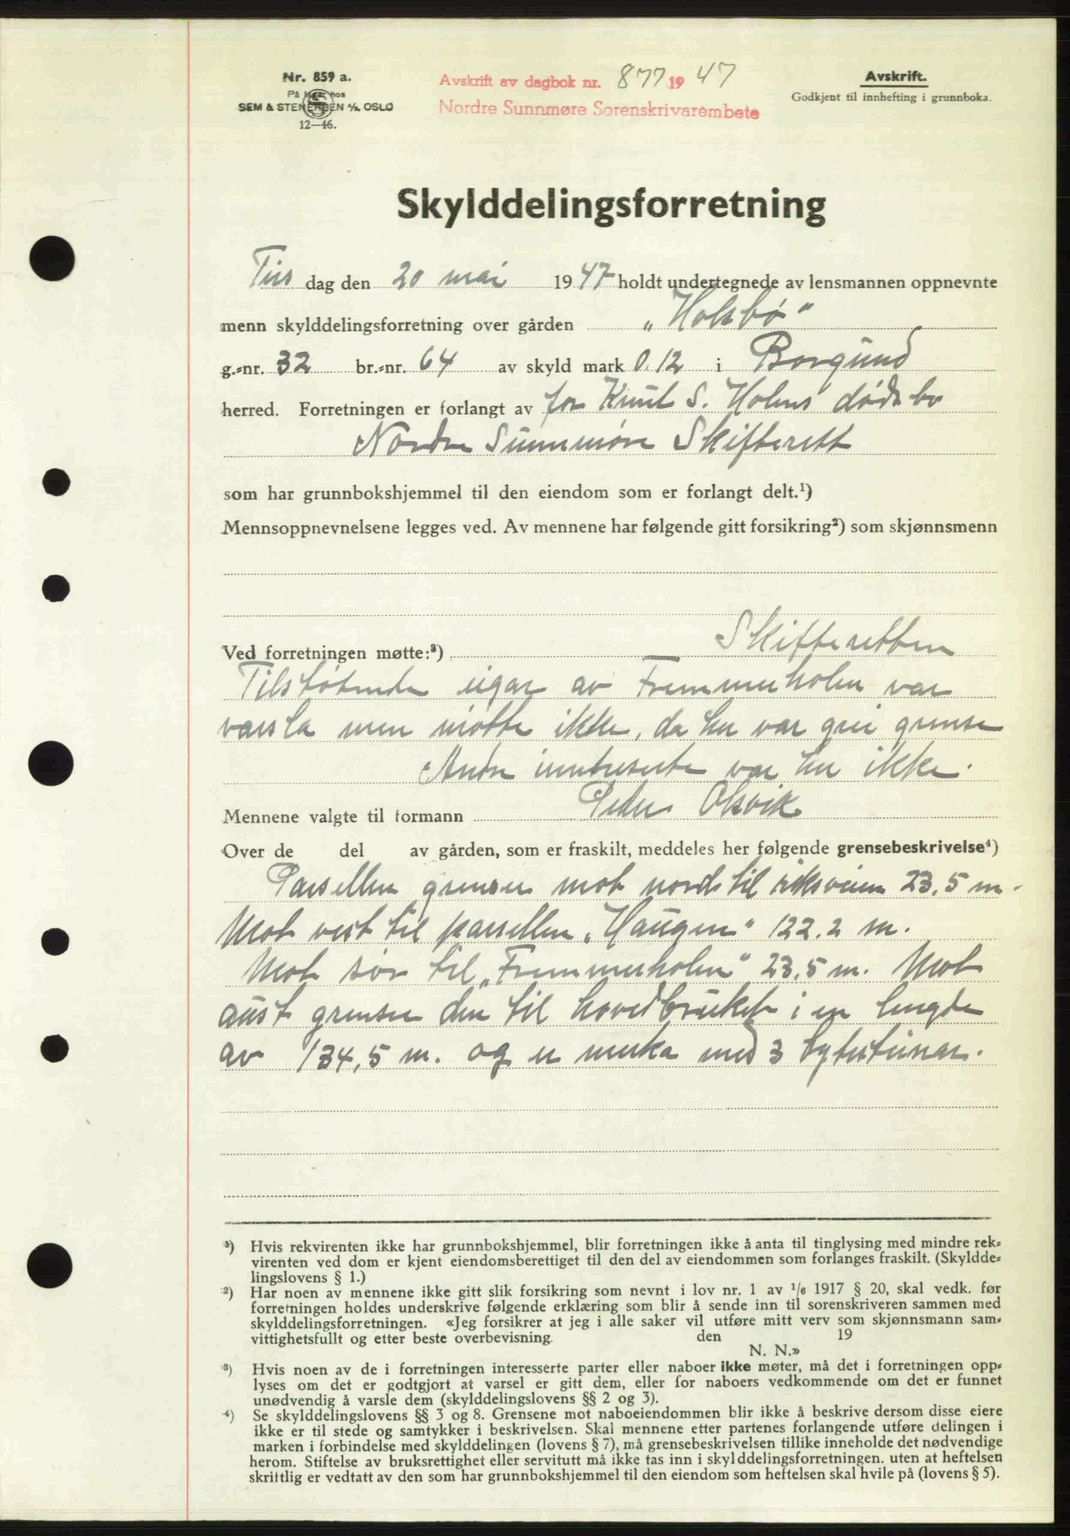 Nr. 859 a.
På lager hos
SEM & STENERSEN A/S, OSLO
12—46.
Avskrift av dagbok nr. 877 1947
Nordre Sunnmøre Sorenskrivarembete
Avskrift.
Godkjent til innhefting i grunnboka.
Skylddelingsforretning
Tirs dag den 20 mai 1947 holdt undertegnede av lensmannen oppnevnte
menn skylddelingsforretning over gården „Holsbø"
g.-nr. 32 br.-nr. 64 av skyld mark 0.12 i Borgund
herred. Forretningen er forlangt av for Knut S. Holens dødsbo
Nordre Sunnmøre Skifterett
som har grunnbokshjemmel til den eiendom som er forlangt delt.¹)
Mennsoppnevnelsene legges ved. Av mennene har følgende gitt forsikring²) som skjønnsmenn
Ved forretningen møtte:³) Skifteretten
Tilstøtende eigar av Fremmerholen var
varsla men møtte ikke, da her var grei grense
Andre interesserte var her ikke.
Mennene valgte til formann Peder Olsvik
Over de del av gården, som er fraskilt, meddeles her følgende grensebeskrivelse⁴)
Parsellen grenser mot nord til riksveien 23,5 m.
Mot vest til parsellen „Haugen" 122.2 m.
Mot sør til „Fremmerholen" 23,5 m. Mot
aust grenser den til hovedbruket i en lengde
av 134,5 m. og er merka med 3 bytesteinar.
¹) Hvis rekvirenten ikke har grunnbokshjemmel, blir forretningen ikke å anta til tinglysing med mindre rek-
virenten ved dom er kjent eiendomsberettiget til den del av eiendommen som forlanges fraskilt. (Skyldde-
lingslovens § 1.)
²) Har noen av mennene ikke gitt slik forsikring som nevnt i lov nr. 1 av 1/6 1917 § 20, skal vedk. før
forretningen holdes underskrive følgende erklæring som blir å sende inn til sorenskriveren sammen med
skylddelingsforretningen. «Jeg forsikrer at jeg i alle saker vil utføre mitt verv som skjønnsmann sam-
vittighetsfullt og etter beste overbevisning. den 19
N. N.»
³) Hvis noen av de i forretningen interesserte parter eller naboer ikke møter, må det i forretningen opp-
lyses om det er godtgjort at varsel er gitt dem, eller for naboers vedkommende om det er funnet
unødvendig å varsle dem (skylddelingslovens §§ 2 og 3).
⁴) Se skylddelingslovens §§ 3 og 8. Grensene mot naboeiendommen blir ikke å beskrive dersom disse eiere
ikke er til stede og samtykker i beskrivelsen. Skal mennene etter partenes forlangende utføre delingen i
marken i forbindelse med skylddelingen (lovens § 7), må grensebeskrivelsen tillike inneholde det nødvendige
herom. Stiftelse av bruksrettighet eller servitutt må ikke tas inn i skylddelingsforretningen, uten at heftelsen
skriftlig er vedtatt av den som har grunnbokshjemmel til den eiendom som heftelsen skal hvile på (lovens § 5).